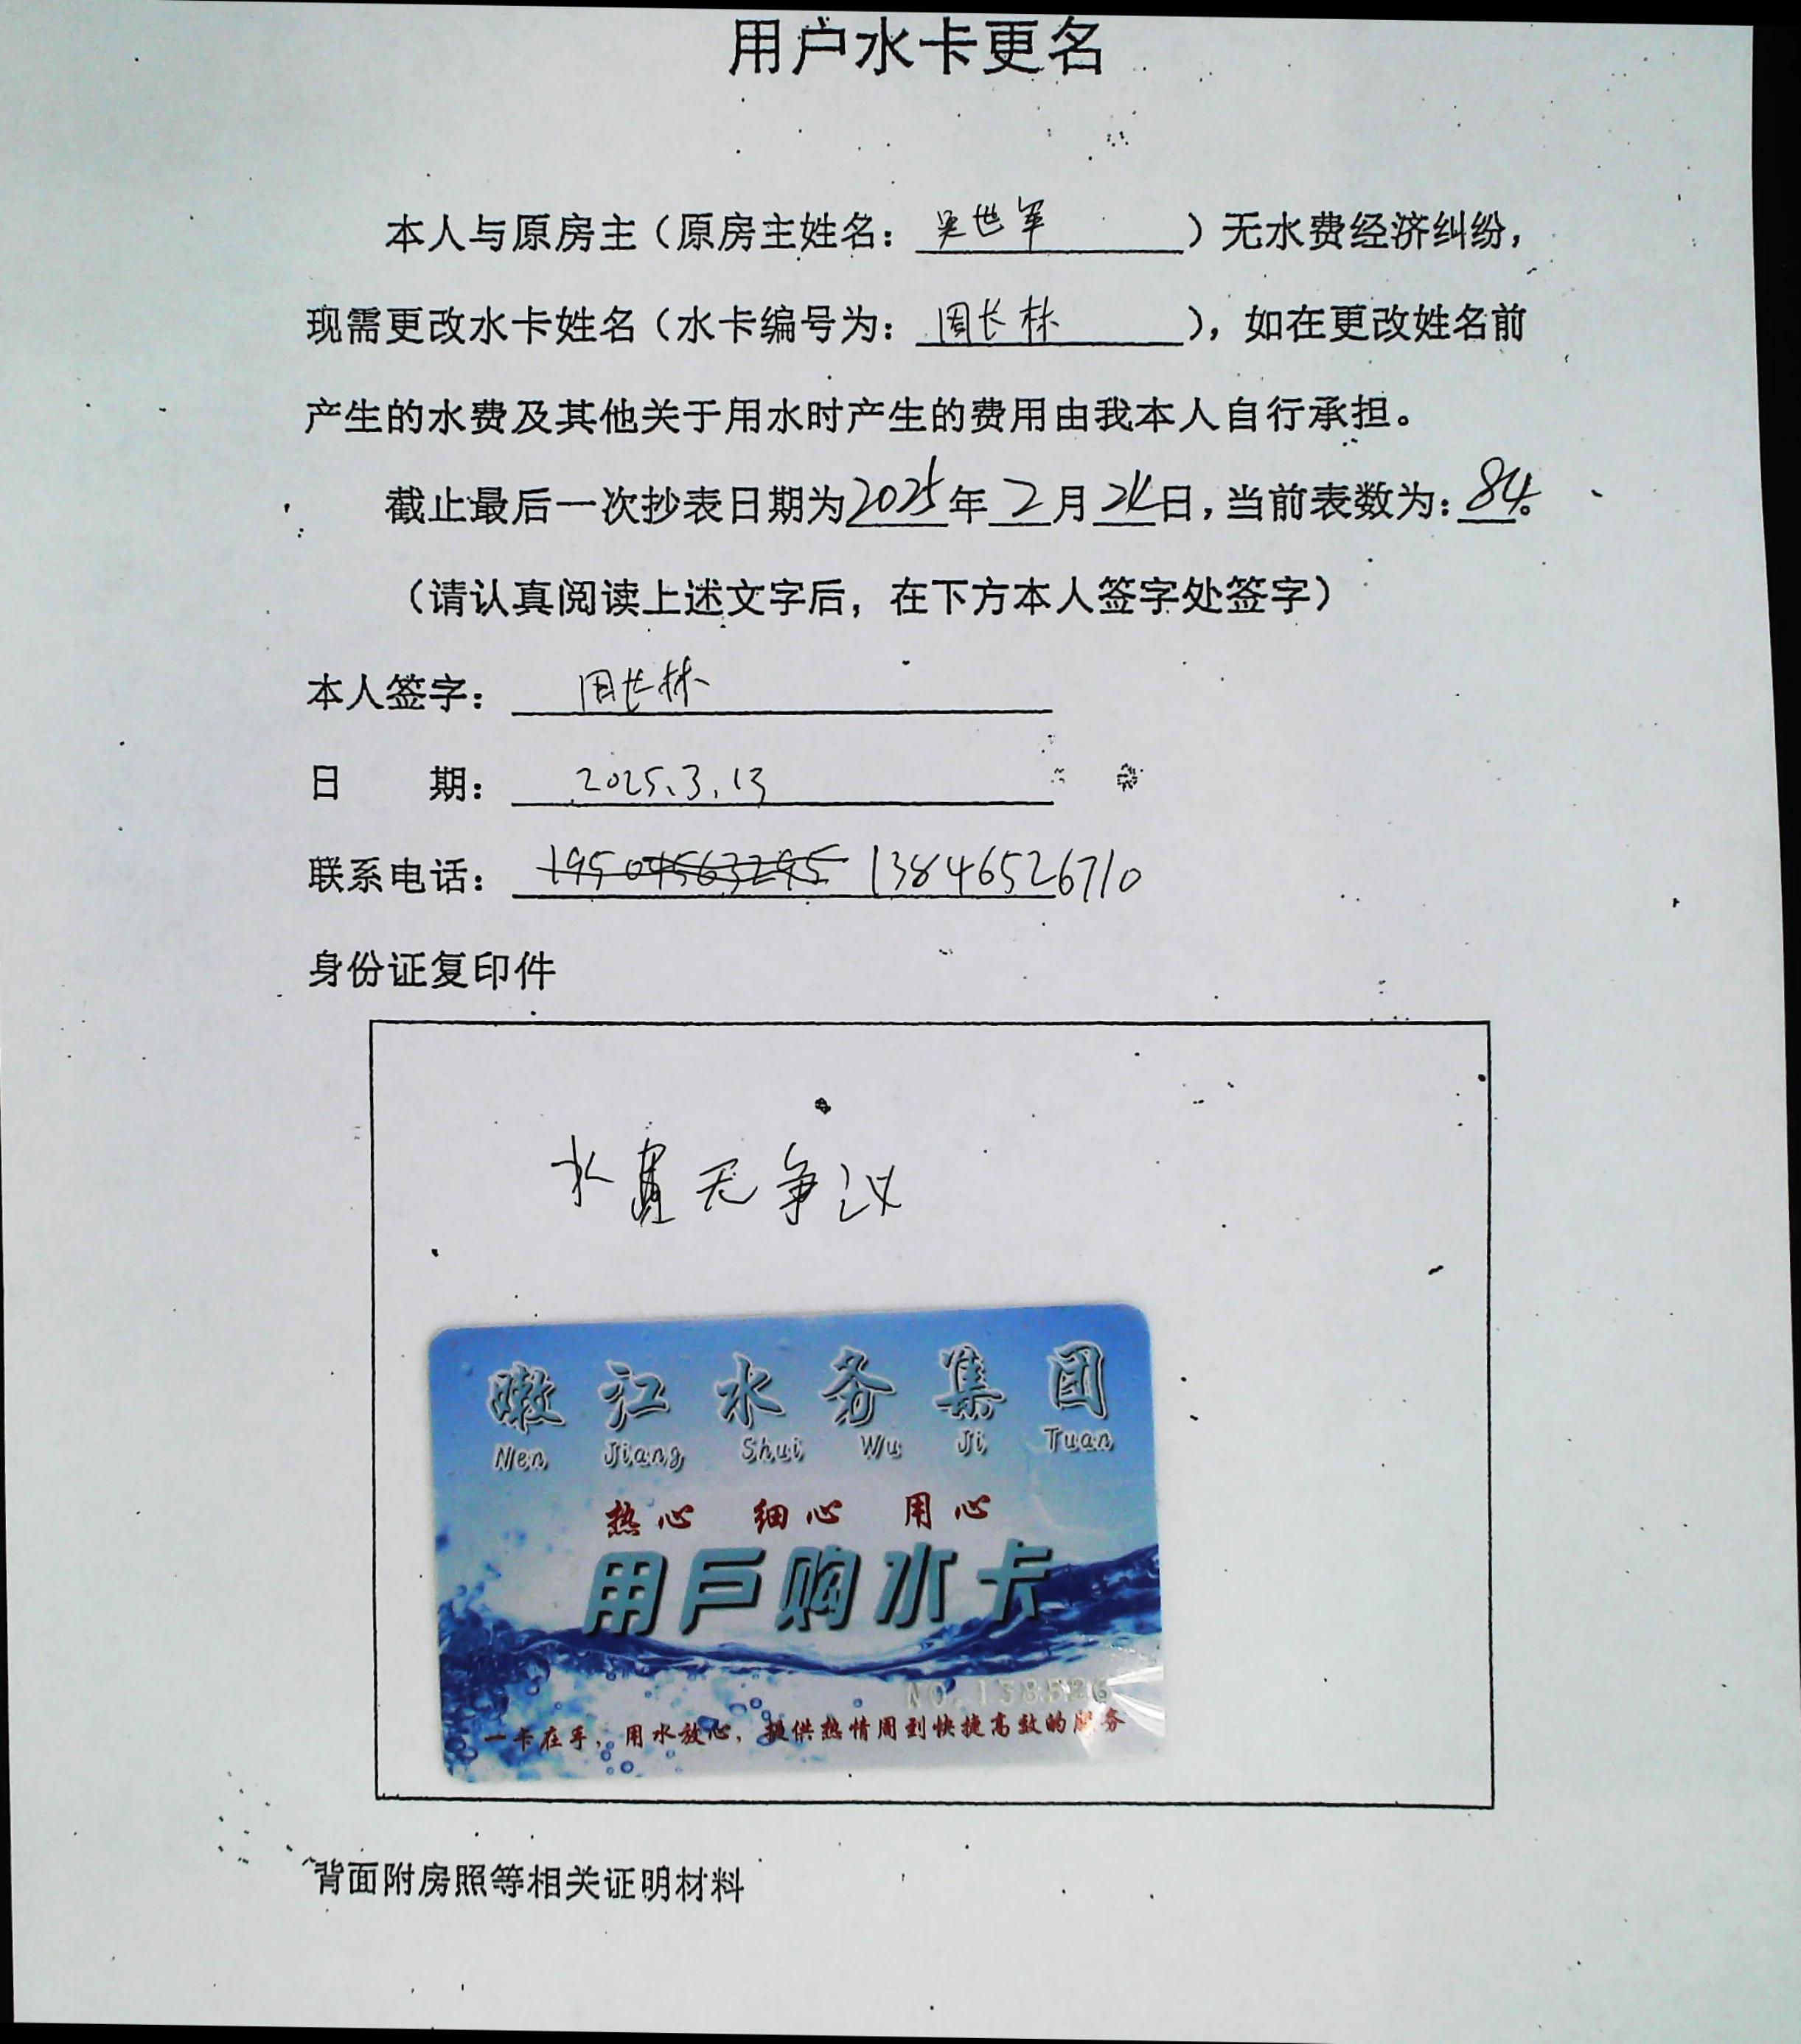 用户水卡更名
本人与原房主（原房主姓名：吴世军）无水费经济纠纷，
现需更改水卡姓名（水卡编号为：周长林），如在更改姓名前
产生的水费及其他关于用水时产生的费用由我本人自行承担。
截止最后一次抄表日期为2025年2月24日，当前表数为：84。
（请认真阅读上述文字后，在下方本人签字处签字）
本人签字：周长林
日 期：2025.3.13
联系电话：19504563295 13846526710
身份证复印件
水费无争议
嫩江水务集团
Nen Jiang Shui Wu Ji Tuan
热心 细心 用心
用户购水卡
NO.158526
一卡在手，用水放心，提供热情周到快捷高效的服务
背面附房照等相关证明材料